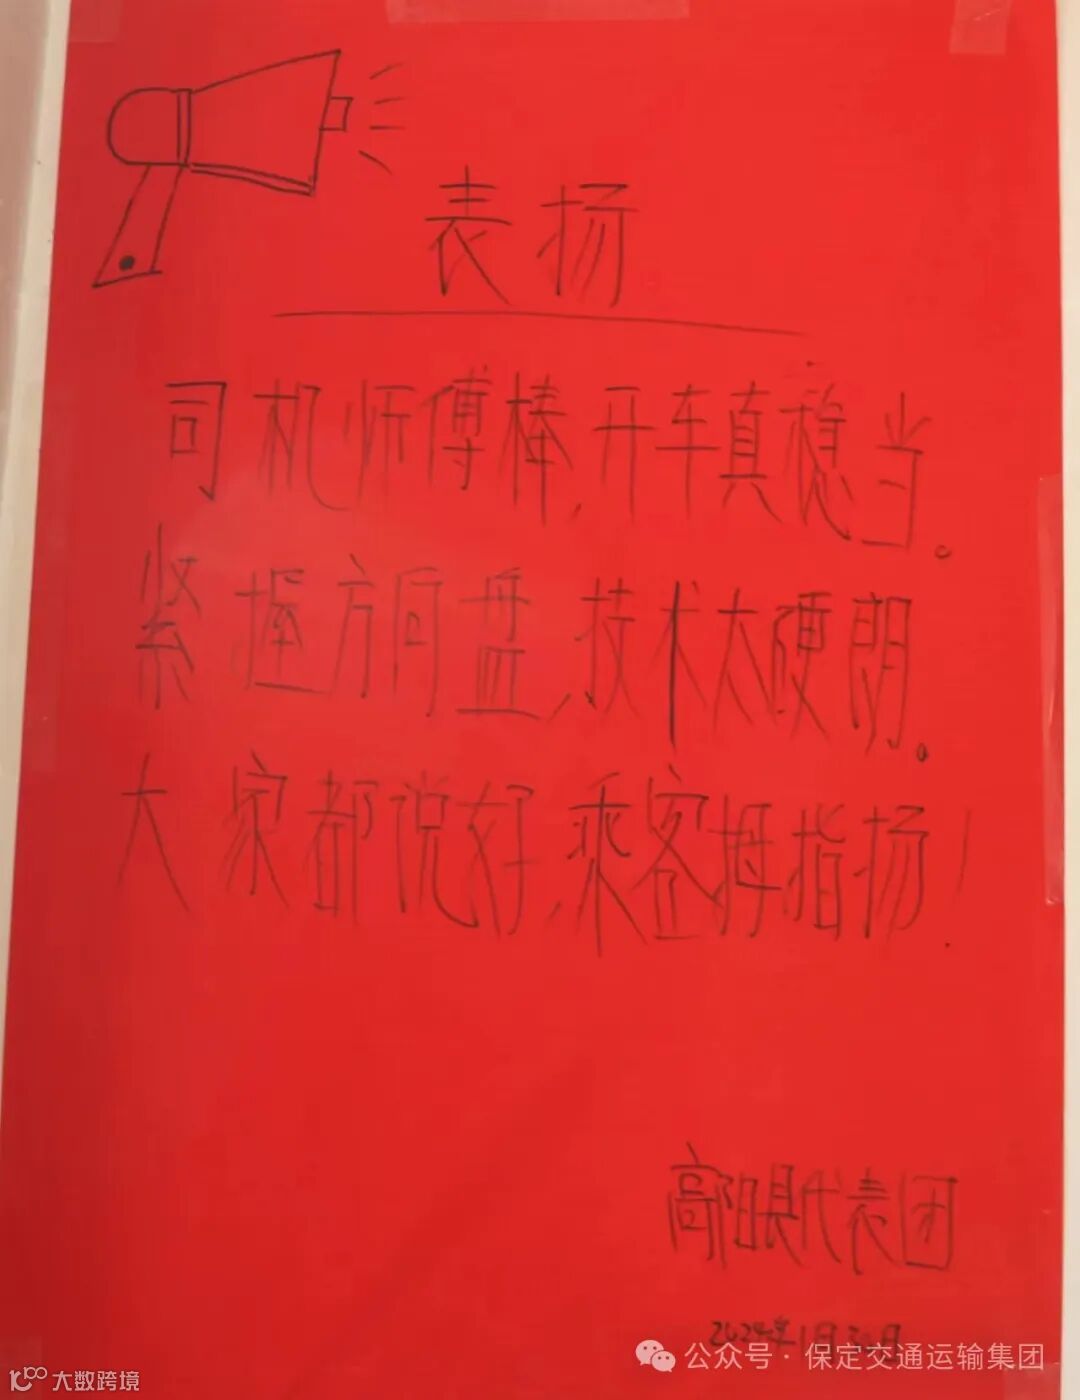 表扬
司机师傅棒,开车真稳当。
紧握方向盘,技术太硬朗。
大家都说好,乘客拇指扬!
高阳县代表团
2024年1月30日
公众号·保定交通运输集团
大数跨境